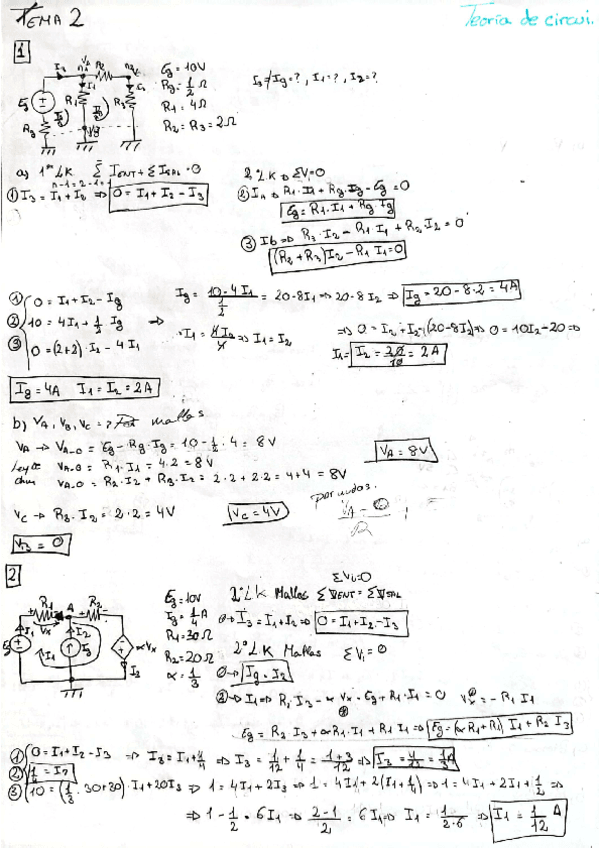 TEMA 2
Teoría de circui.
1
Eg = 10V
Rg = 1/2 Ω
R1 = 4Ω
R2 = R3 = 2Ω
Ig = ?, I1 = ?, I2 = ?
a) 1er LK Σ IENT + Σ ISAL = 0
n-1 = 2-1 = 1
① I3 = I1 + I2 ⇒ 0 = I1 + I2 - I3
2º LK ⇒ ΣV = 0
② Ia ⇒ R1·I1 + Rg·Ig - Eg = 0
Eg = R1·I1 + Rg·Ig
③ Ib ⇒ R3·I2 - R1·I1 + R2·I2 = 0
(R2+R3)I2 - R1 I1 = 0
① 0 = I1 + I2 - Ig
② 10 = 4I1 + 1/2 Ig
③ 0 = (2+2)·I2 - 4I1
Ig = (10 - 4I1)/(1/2) = 20 - 8I1 ⇒ 20 - 8I2 ⇒ Ig = 20 - 8·2 = 4A
I1 = 4I2/4 ⇒ I1 = I2
⇒ 0 = I2 + I2 - (20 - 8I2) ⇒ 0 = 10I2 - 20 ⇒
I1 = I2 = 20/10 = 2A
Ig = 4A I1 = I2 = 2A
b) VA, VB, VC = ? mallas
VA → VA-0 = Eg - Rg·Ig = 10 - 1/2·4 = 8V
VA = 8V
Ley de VA-0 = R1·I1 = 4·2 = 8V
ohm VA-0 = R2·I2 + R3·I2 = 2·2 + 2·2 = 4+4 = 8V
por nudos.
VC → R3·I2 = 2·2 = 4V
VC = 4V
VB = 0
2
Eg = 10V
Ig = 1/4 A
R1 = 30Ω
R2 = 20Ω
α = 1/3
ΣVi = 0
2º LK Mallas ΣVENT = ΣVSAL
I3 = I1 + I2 ⇒ 0 = I1 + I2 - I3
2º LK Mallas ΣVi = 0
Ig = I2
② → I1 ⇒ R2·I3 - α Vx - Eg + R1·I1 = 0 Vx = -R1 I1
Eg = R2 I3 + αR1·I1 + R1 I1 ⇒ Eg = (αR1 + R1) I1 + R2 I3
① 0 = I1 + I2 - I3 ⇒ I3 = I1 + 1/4 ⇒ I3 = 1/12 + 1/4 = (1+3)/12 ⇒ I3 = 4/12 = 1/3 A
② 1/4 = I2
③ 10 = (1/3·30 + 30)·I1 + 20I3 ⇒ 1 = 4I1 + 2I3 ⇒ 1 = 4I1 + 2(I1 + 1/4) ⇒ 1 = 4I1 + 2I1 + 1/2 ⇒
⇒ 1 - 1/2 = 6I1 ⇒ (2-1)/2 = 6I1 ⇒ I1 = 1/(2·6) ⇒ I1 = 1/12 A